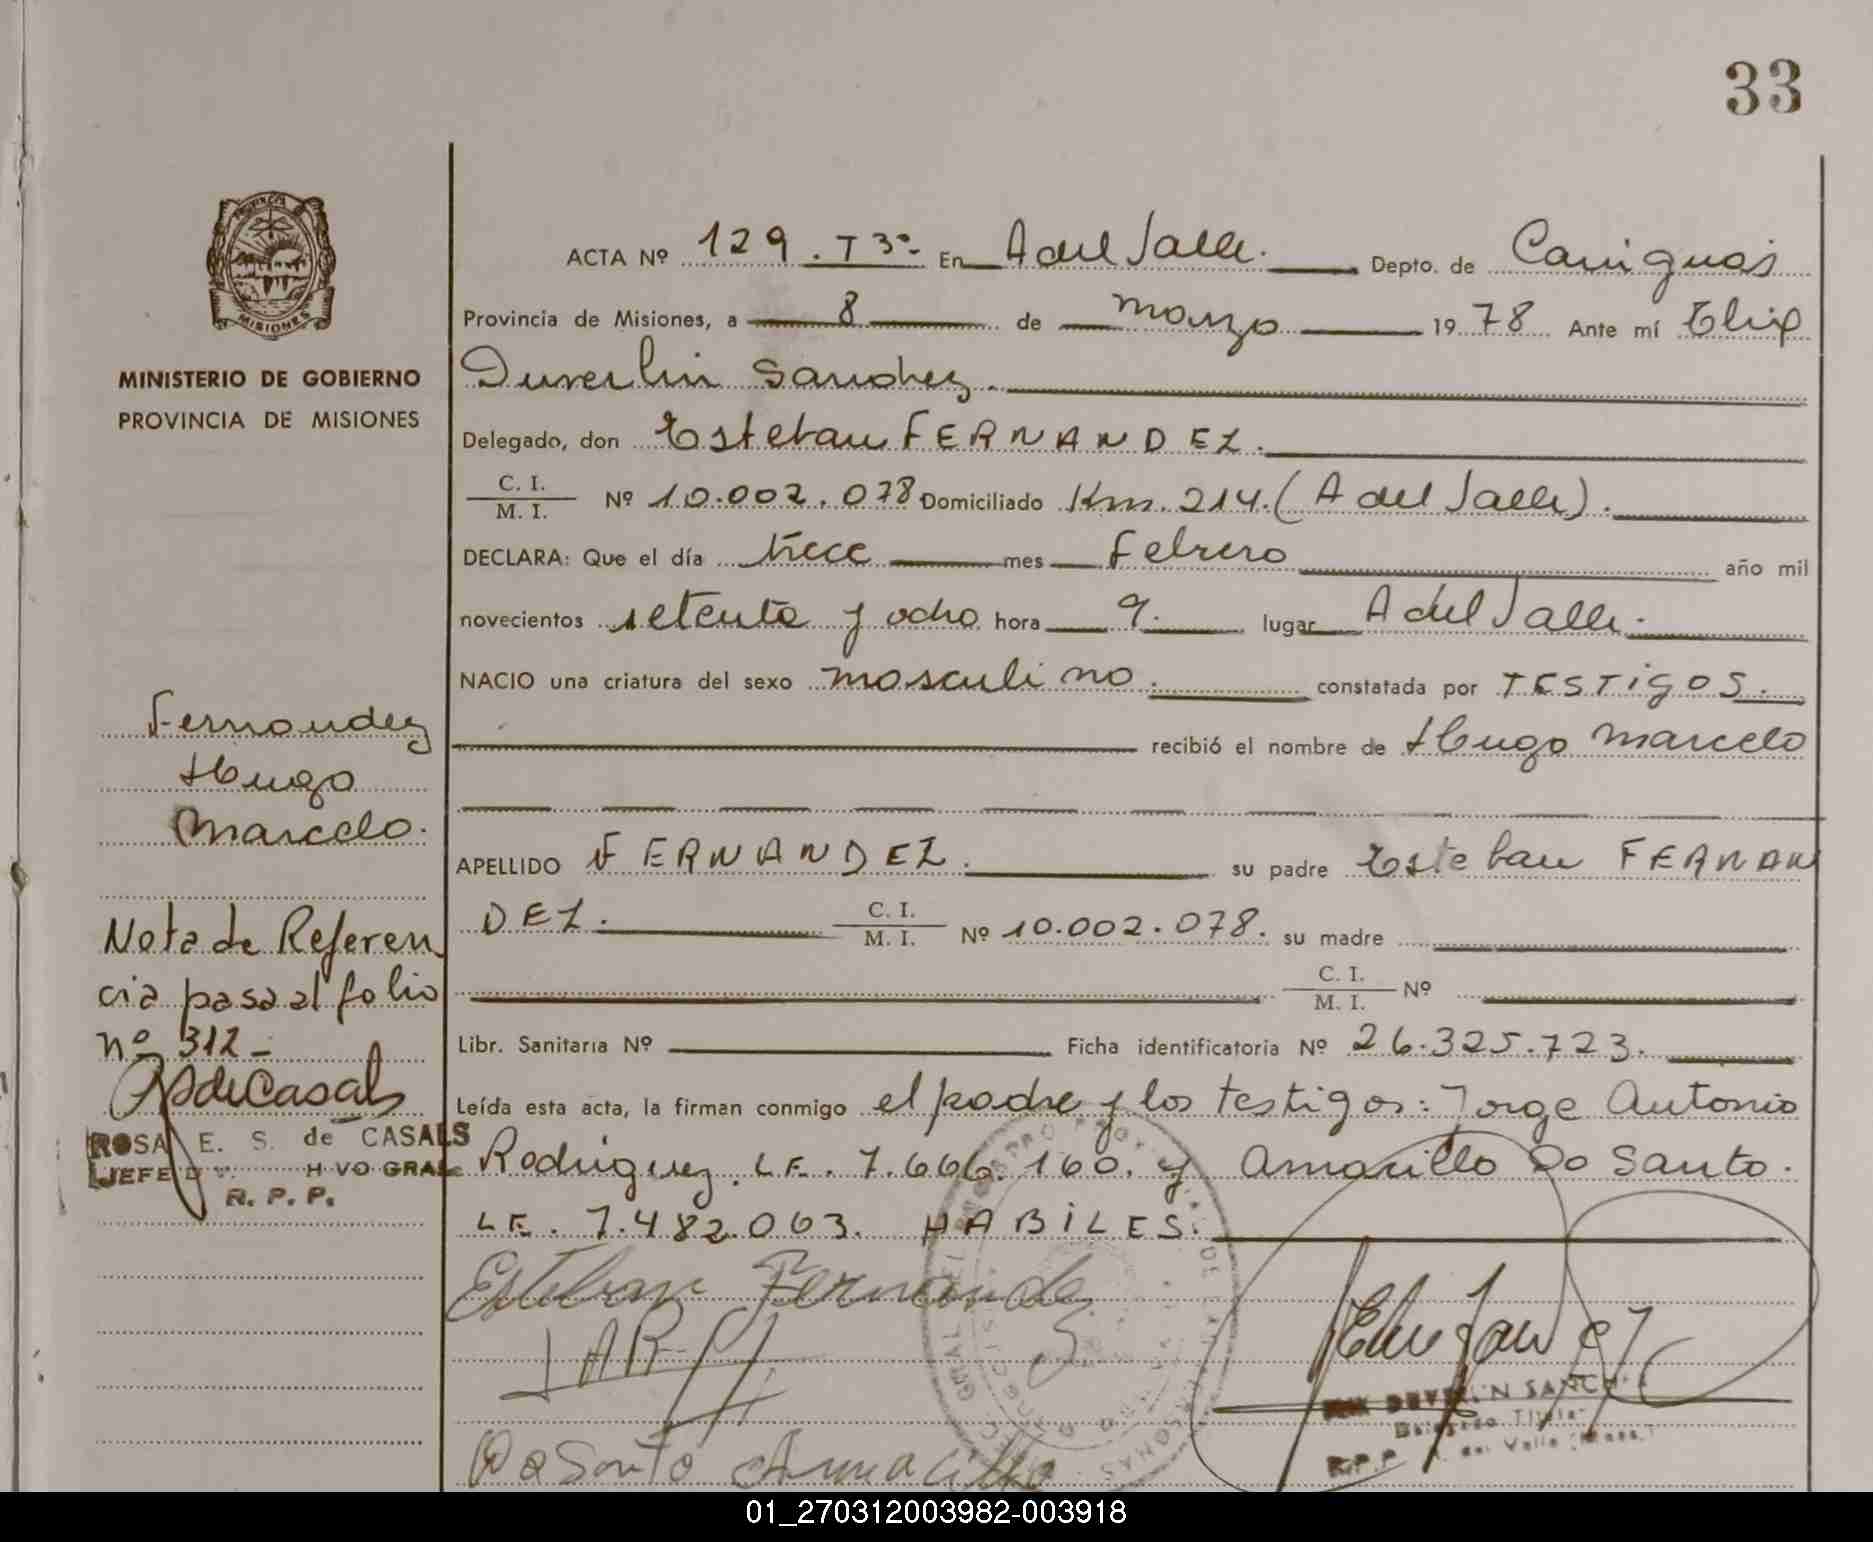 33
PROVINCIA
MISIONES
MINISTERIO DE GOBIERNO
PROVINCIA DE MISIONES
ACTA Nº 129. T 3º- En A del Valle. Depto. de Cainguás
Provincia de Misiones, a 8 de marzo 1978 Ante mí Elix
Duverlin Sanchez.
Delegado, don Esteban FERNANDEZ.
C. I.
M. I. Nº 10.002.078 Domiciliado Km. 214. (A del Valle).
DECLARA: Que el día trece mes Febrero año mil
novecientos setenta y ocho hora 9. lugar A del Valle.
NACIO una criatura del sexo masculino. constatada por TESTIGOS.
recibió el nombre de Hugo Marcelo
APELLIDO FERNANDEZ. su padre Esteban FERNAN
DEZ. C. I.
M. I. Nº 10.002.078. su madre
C. I.
M. I. Nº
Libr. Sanitaria Nº Ficha identificatoria Nº 26.325.723.
Leída esta acta, la firman conmigo el padre y los testigos: Jorge Antonio
Rodriguez. L E. 7.666.160. y Amarillo Do Santo.
L E. 7.482.063. HABILES.
Fernandez
Hugo
Marcelo.
Nota de Referen
cia pasa al folio
nº 312-
RSdeCasals
ROSA E. S. de CASALS
JEFE HVO GRAL
R. P. P.
Esteban Fernandez
JAR
Do Santo Amarillo
Elix Sanchez
ELIX DUVERLIN SANCHEZ
Delegado Titular
R.P.P. A. del Valle (Mnes.)
01_270312003982-003918